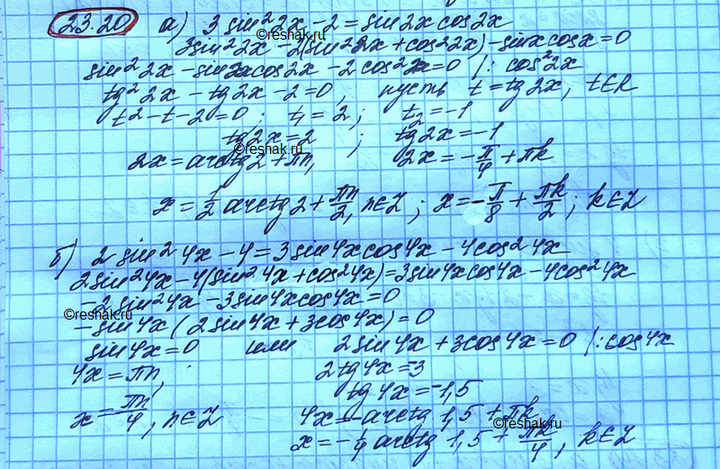 23.20 а) 3 sin² 2x - 2 = sin 2x cos 2x
3sin² 2x - 2(sin² 2x + cos² 2x) - sin x cos x = 0
sin² 2x - sin 2x cos 2x - 2 cos² 2x = 0 |: cos² 2x
tg² 2x - tg 2x - 2 = 0, пусть t = tg 2x, t∈R
t² - t - 2 = 0 : t₁ = 2; t₂ = -1
tg 2x = 2 ; tg 2x = -1
2x = arctg 2 + πn, 2x = -π/4 + πk
x = 1/2 arctg 2 + πn/2, n∈Z ; x = -π/8 + πk/2 ; k∈Z
б) 2 sin² 4x - 4 = 3 sin 4x cos 4x - 4 cos² 4x
2 sin² 4x - 4(sin² 4x + cos² 4x) = 3 sin 4x cos 4x - 4 cos² 4x
-2 sin² 4x - 3 sin 4x cos 4x = 0
- sin 4x (2 sin 4x + 3 cos 4x) = 0
sin 4x = 0 или 2 sin 4x + 3 cos 4x = 0 |: cos 4x
4x = πn, ; 2 tg 4x = -3
tg 4x = -1,5
x = πn/4, n∈Z 4x = - arctg 1,5 + πk
x = - 1/4 arctg 1,5 + πk/4, k∈Z
©reshak.ru
©reshak.ru
©reshak.ru
©reshak.ru